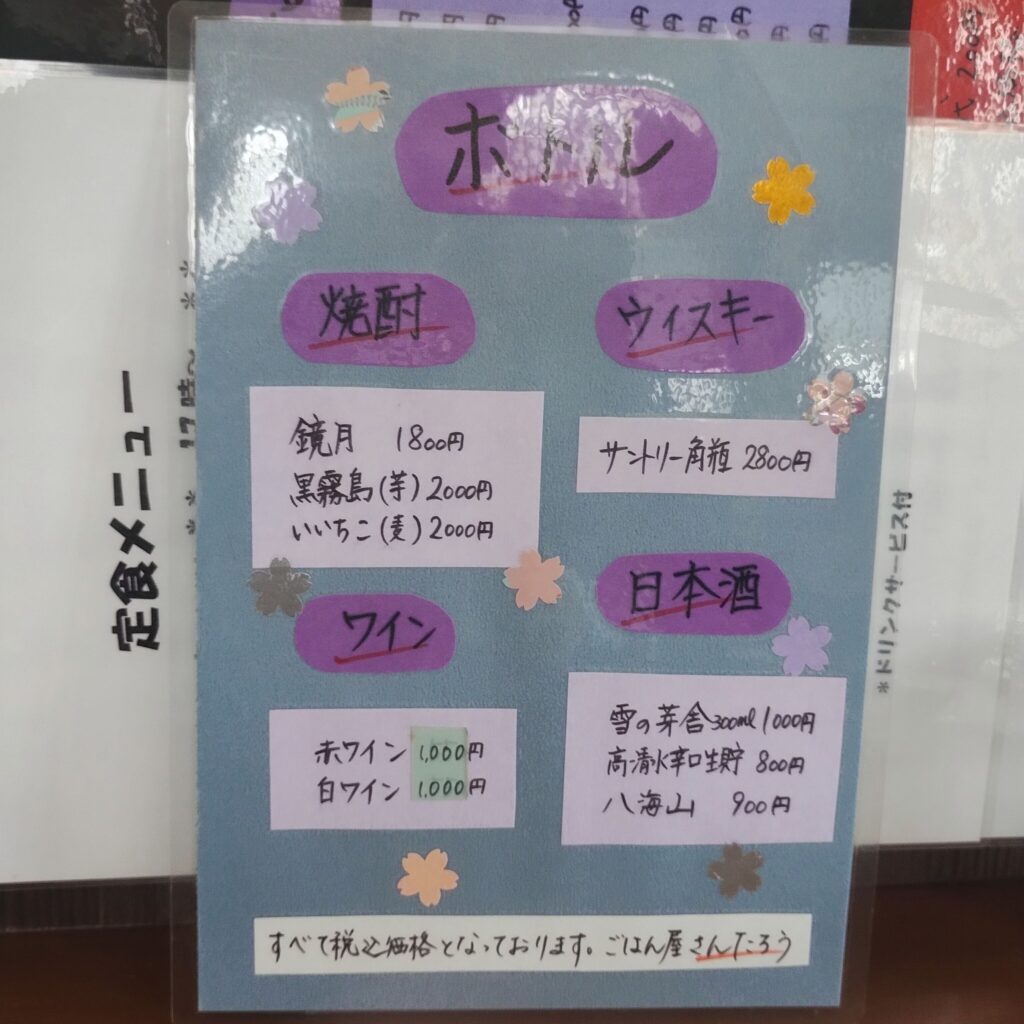 ボトル
焼酎
鏡月 1800円
黒霧島(芋)2000円
いいちこ(麦)2000円
ウィスキー
サントリー角瓶 2800円
ワイン
赤ワイン 1,000円
白ワイン 1,000円
日本酒
雪の芽舎300ml 1000円
高清水辛口生貯 800円
八海山 900円
すべて税込価格となっております。ごはん屋さんたろう
定食メニュー
＊ドリンクサービス付
17時～